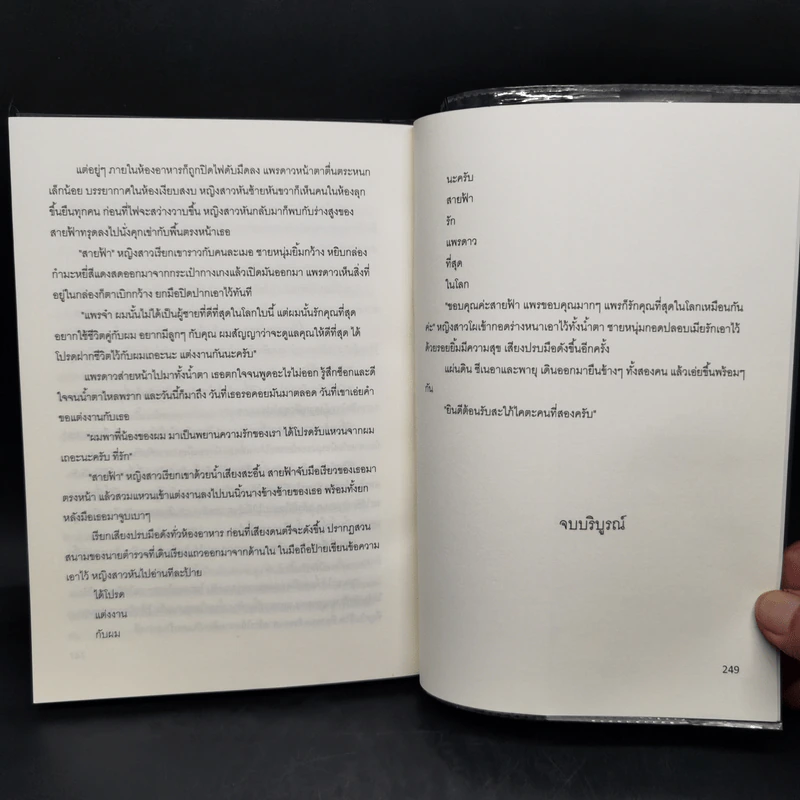 แต่อยู่ๆ ภายในห้องอาหารก็ถูกปิดไฟดับมืดลง แพรดาวหน้าตาตื่นตระหนก
เล็กน้อย บรรยากาศในห้องเงียบสงบ หญิงสาวหันซ้ายหันขวาก็เห็นคนในห้องลุก
ขึ้นยืนทุกคน ก่อนที่ไฟจะสว่างวาบขึ้น หญิงสาวหันกลับมาก็พบกับร่างสูงของ
สายฟ้าทรุดลงไปนั่งคุกเข่ากับพื้นตรงหน้าเธอ
"สายฟ้า" หญิงสาวเรียกเขาราวกับคนละเมอ ชายหนุ่มยิ้มกว้าง หยิบกล่อง
กำมะหยี่สีแดงสดออกมาจากกระเป๋ากางเกงแล้วเปิดมันออกมา แพรดาวเห็นสิ่งที่
อยู่ในกล่องก็ตาเบิกกว้าง ยกมือปิดปากเอาไว้ทันที
"แพรจ๋า ผมนั้นไม่ได้เป็นผู้ชายที่ดีที่สุดในโลกใบนี้ แต่ผมนั้นรักคุณที่สุด
อยากใช้ชีวิตคู่กับผม อยากมีลูกๆ กับคุณ ผมสัญญาว่าจะดูแลคุณให้ดีที่สุด ได้
โปรดฝากชีวิตไว้กับผมเถอะนะ แต่งงานกันนะครับ"
แพรดาวส่ายหน้าไปมาทั้งน้ำตา เธอตกใจจนพูดอะไรไม่ออก รู้สึกช็อกและดี
ใจจนน้ำตาไหลพราก และวันนี้ก็มาถึง วันที่เธอรอคอยมันมาตลอด วันที่เขาเอ่ยคำ
ขอแต่งงานกับเธอ
"ผมพาพี่น้องของผม มาเป็นพยานความรักของเรา ได้โปรดรับแหวนจากผม
เถอะนะครับ ที่รัก"
"สายฟ้า" หญิงสาวเรียกเขาด้วยน้ำเสียงสะอื้น สายฟ้าจับมือเรียวของเธอมา
ตรงหน้า แล้วสวมแหวนเข้าแต่งงานลงไปบนนิ้วนางข้างซ้ายของเธอ พร้อมทั้งยก
หลังมือเธอมาจูบเบาๆ
เรียกเสียงปรบมือดังทั่วห้องอาหาร ก่อนที่เสียงดนตรีจะดังขึ้น ปรากฏสวน
สนามของนายตำรวจที่เดินเรียงแถวออกมาจากด้านใน ในมือถือป้ายเขียนข้อความ
เอาไว้ หญิงสาวหันไปอ่านทีละป้าย
ได้โปรด
แต่งงาน
กับผม
นะครับ
สายฟ้า
รัก
แพรดาว
ที่สุด
ในโลก
"ขอบคุณค่ะสายฟ้า แพรขอบคุณมากๆ แพรก็รักคุณที่สุดในโลกเหมือนกัน
ค่ะ" หญิงสาวโผเข้ากอดร่างหนาเอาไว้ทั้งน้ำตา ชายหนุ่มกอดปลอบเมียรักเอาไว้
ด้วยรอยยิ้มมีความสุข เสียงปรบมือดังขึ้นอีกครั้ง
แผ่นดิน ซีเนอาและพายุ เดินออกมายืนข้างๆ ทั้งสองคน แล้วเอ่ยขึ้นพร้อมๆ
กัน
"ยินดีต้อนรับสะใภ้ไคตะคนที่สองครับ"
จบบริบูรณ์
249